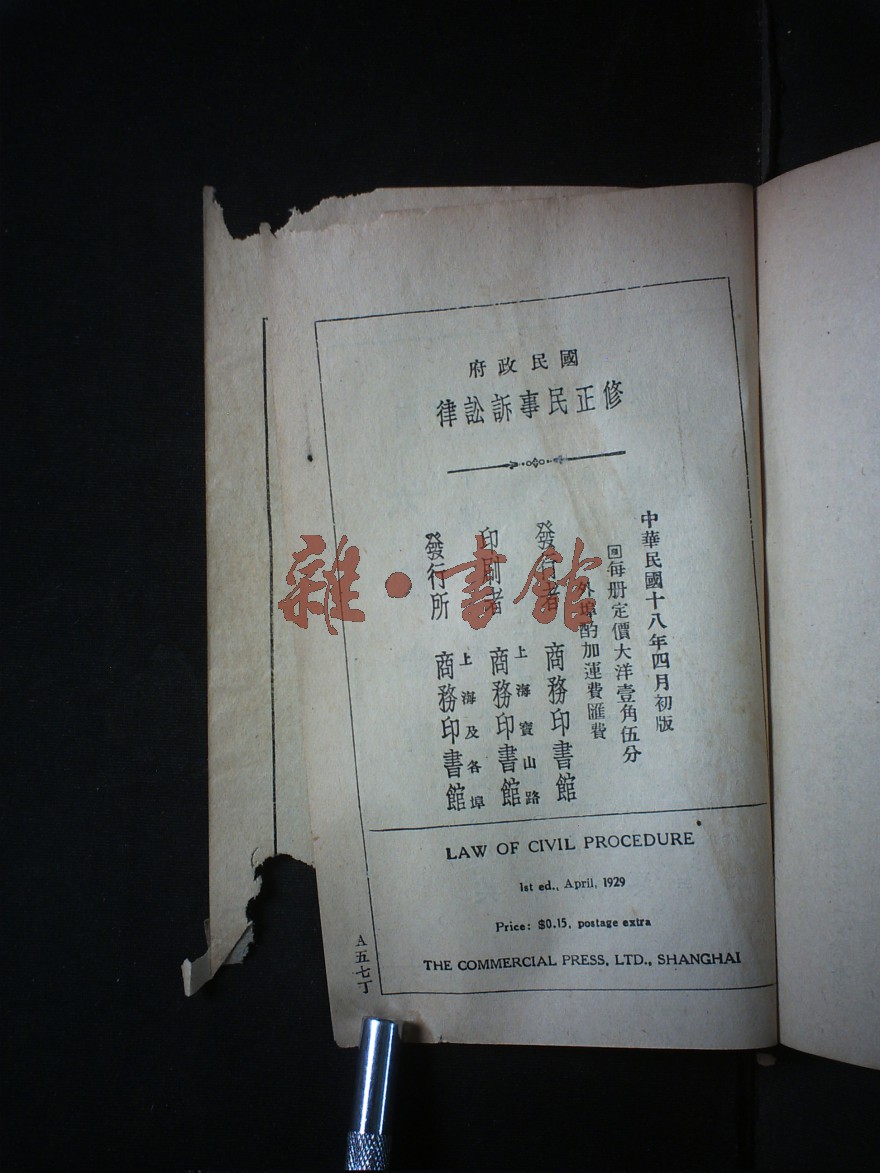 國民政府
修正民事訴訟律
中華民國十八年四月初版
每册定價大洋壹角伍分
外埠酌加運費匯費
發行者 商務印書館
上海寶山路
印刷者 商務印書館
上海及各埠
發行所 商務印書館
LAW OF CIVIL PROCEDURE
1st ed., April, 1929
Price: $0.15, postage extra
THE COMMERCIAL PRESS, LTD., SHANGHAI
A五七丁
雜·書館